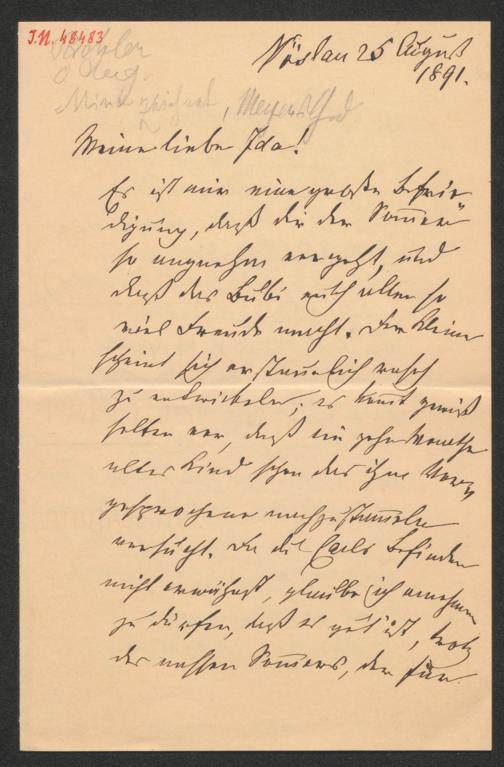 J.N. 48483
Vöslau 25 August
1891.
Meine liebe Ida!
Es ist mir eine große Befrie-
digung, daß dir der Sommer
so angenehm vergeht, und
daß der Bubi euch allen so
viel Freude macht. Der Kleine
scheint sich erstaunlich rasch
zu entwickeln; es kommt gewiß
selten vor, daß ein zehn Monathe
altes Kind schon das ihm Vor-
gesprochene nachzustammeln
versucht. Da du Carls Befinden
nicht erwähnst, glaube ich annehmen
zu dürfen, daß es gut ist, trotz
des nassen Sommers, der für